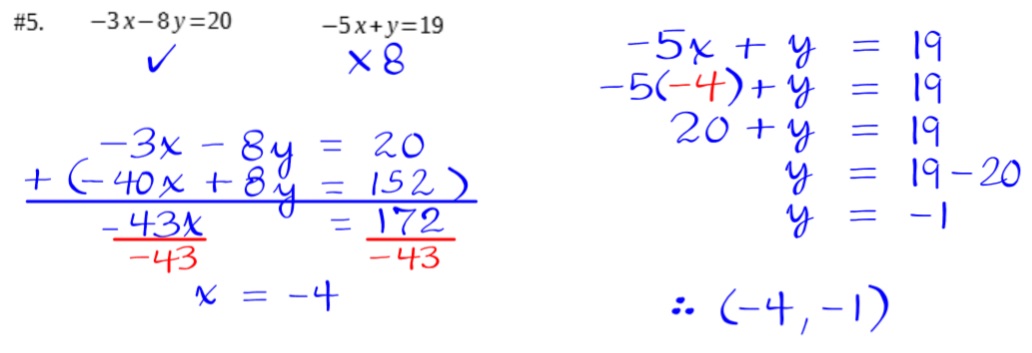 #5. −3x−8y=20 −5x+y=19
✓ ×8
−3x − 8y = 20
+ (−40x + 8y = 152)
−43x = 172
−43 −43
x = −4
−5x + y = 19
−5(−4) + y = 19
20 + y = 19
y = 19 − 20
y = −1
∴ (−4, −1)